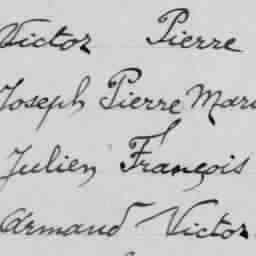 Victor Pierre
Joseph Pierre Mari
Julien François
Armand Victor